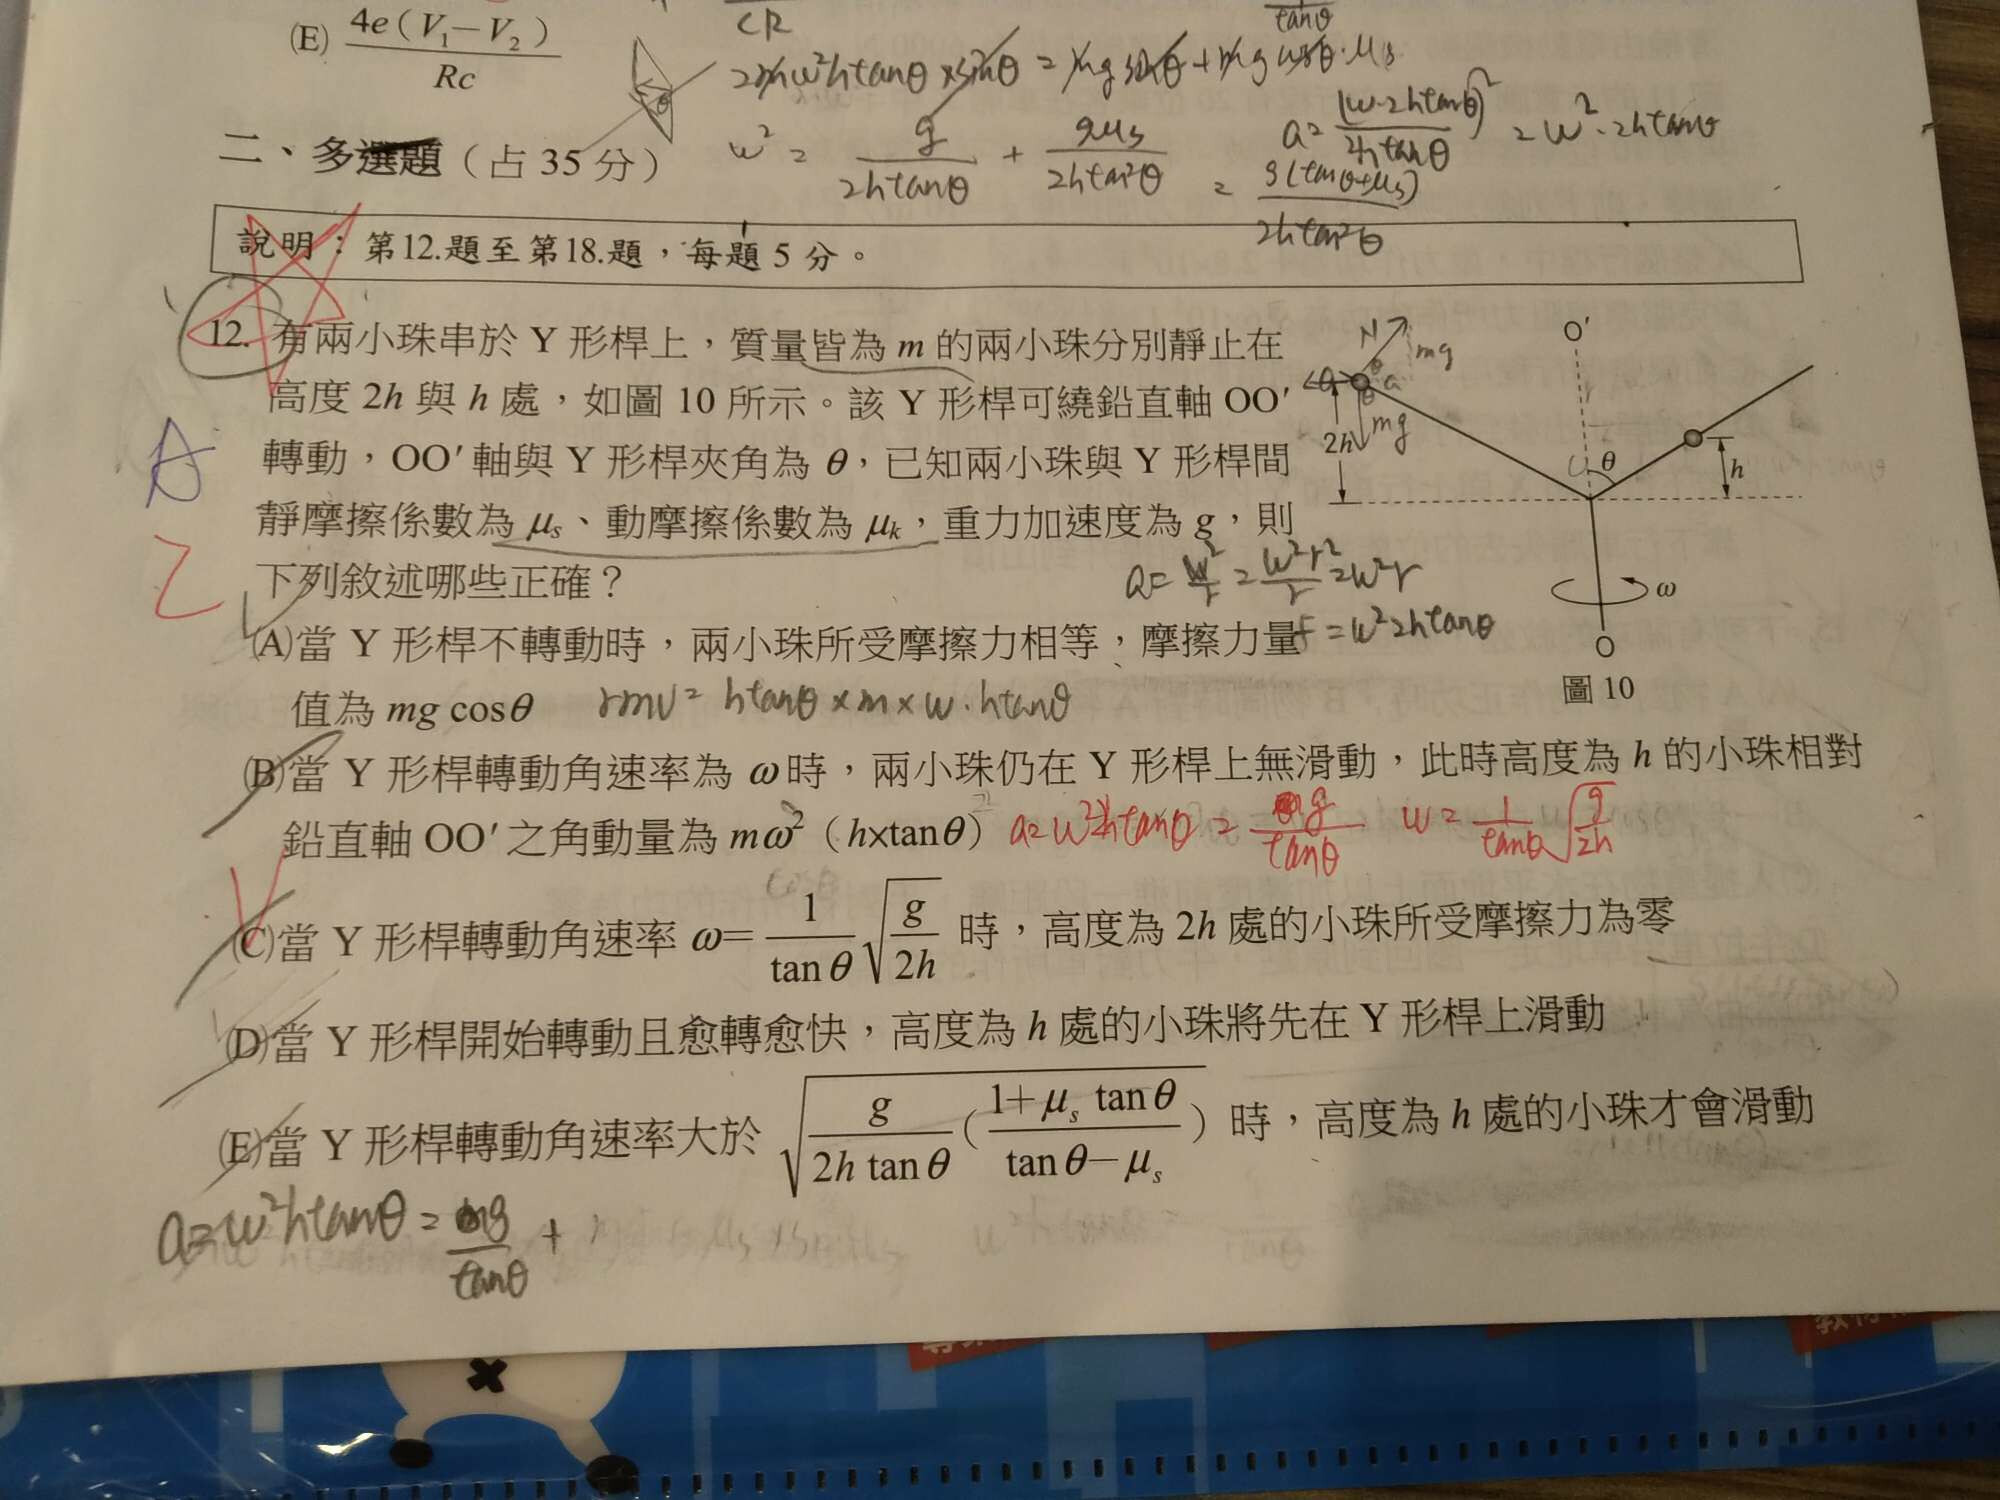 (E) 4e(V₁−V₂) / Rc
CR
tanθ
2mω²htanθ×sinθ = mg sinθ + mg cosθ·μs
二、多選題（占 35 分）
ω² = g / 2htanθ + gμs / 2htan²θ = g(tanθ+μs) / 2htan²θ
a = (ω·2htanθ)² / 2htanθ = ω²·2htanθ
說明：第12.題至第18.題，每題 5 分。
12. 有兩小珠串於 Y 形桿上，質量皆為 m 的兩小珠分別靜止在
高度 2h 與 h 處，如圖 10 所示。該 Y 形桿可繞鉛直軸 OO′
轉動，OO′軸與 Y 形桿夾角為 θ，已知兩小珠與 Y 形桿間
靜摩擦係數為 μs、動摩擦係數為 μk，重力加速度為 g，則
下列敘述哪些正確？
a = = ω²r² / r = ω²r
F = ω²2htanθ
O′
N
mg
θ
a
mg
2h
θ
h
ω
O
圖 10
(A)當 Y 形桿不轉動時，兩小珠所受摩擦力相等，摩擦力量
值為 mg cosθ
rmv = htanθ×m×ω·htanθ
(B)當 Y 形桿轉動角速率為 ω時，兩小珠仍在 Y 形桿上無滑動，此時高度為 h 的小珠相對
鉛直軸 OO′之角動量為 mω²（h×tanθ）
a = ω²2htanθ = g / tanθ ω = 1 / tanθ √(g / 2h)
(C)當 Y 形桿轉動角速率 ω= 1 / tanθ √(g / 2h) 時，高度為 2h 處的小珠所受摩擦力為零
(D)當 Y 形桿開始轉動且愈轉愈快，高度為 h 處的小珠將先在 Y 形桿上滑動
(E)當 Y 形桿轉動角速率大於 √(g / 2h tanθ (1+μs tanθ / tanθ−μs)) 時，高度為 h 處的小珠才會滑動
a = ω²htanθ = mg / tanθ +